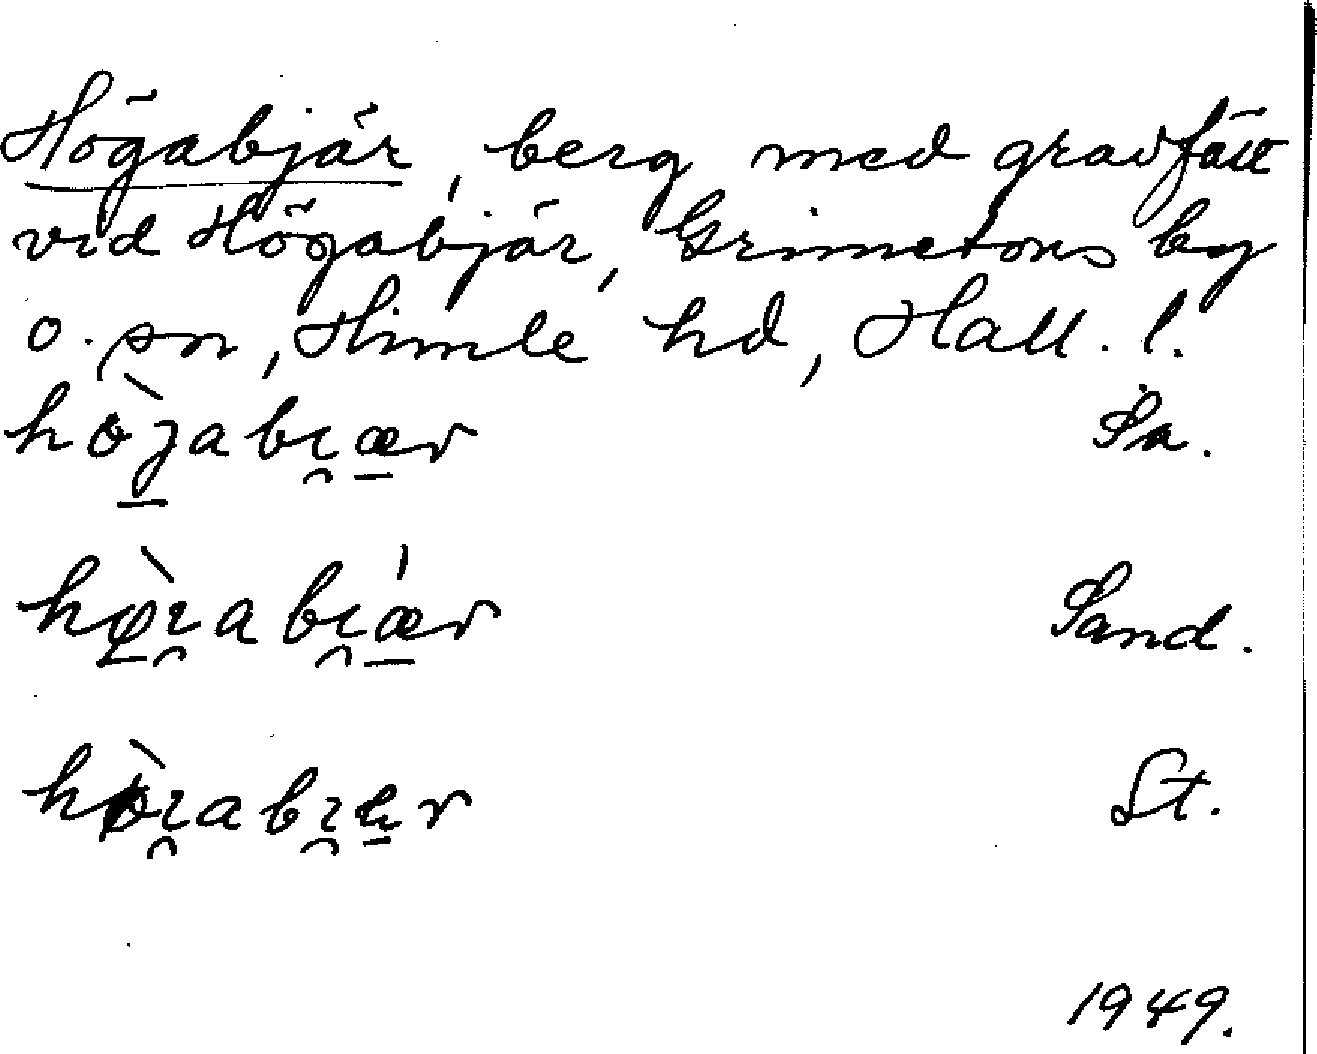 Högabjär, berg med gravfält
vid Högabjär, Grimetons by
o. sn, Himle hd, Hall. l.
hò̱ȷabı̯æ̱r Sa.
hø̱̀ı̯abı̯ǽ̱r Sand.
hòı̯abı̯e̱r St.
1949.